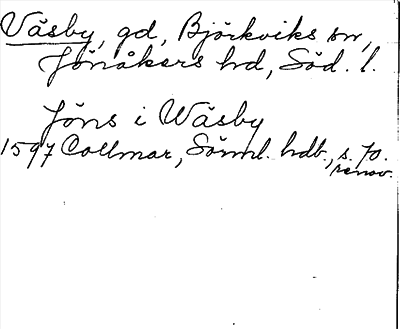 Väsby, gd, Björkviks sn,
Jönåkers hd, Söd. l.
Jöns i Wäsby
1597 Collmar, Sörml. hdb., s. 70.
renov.